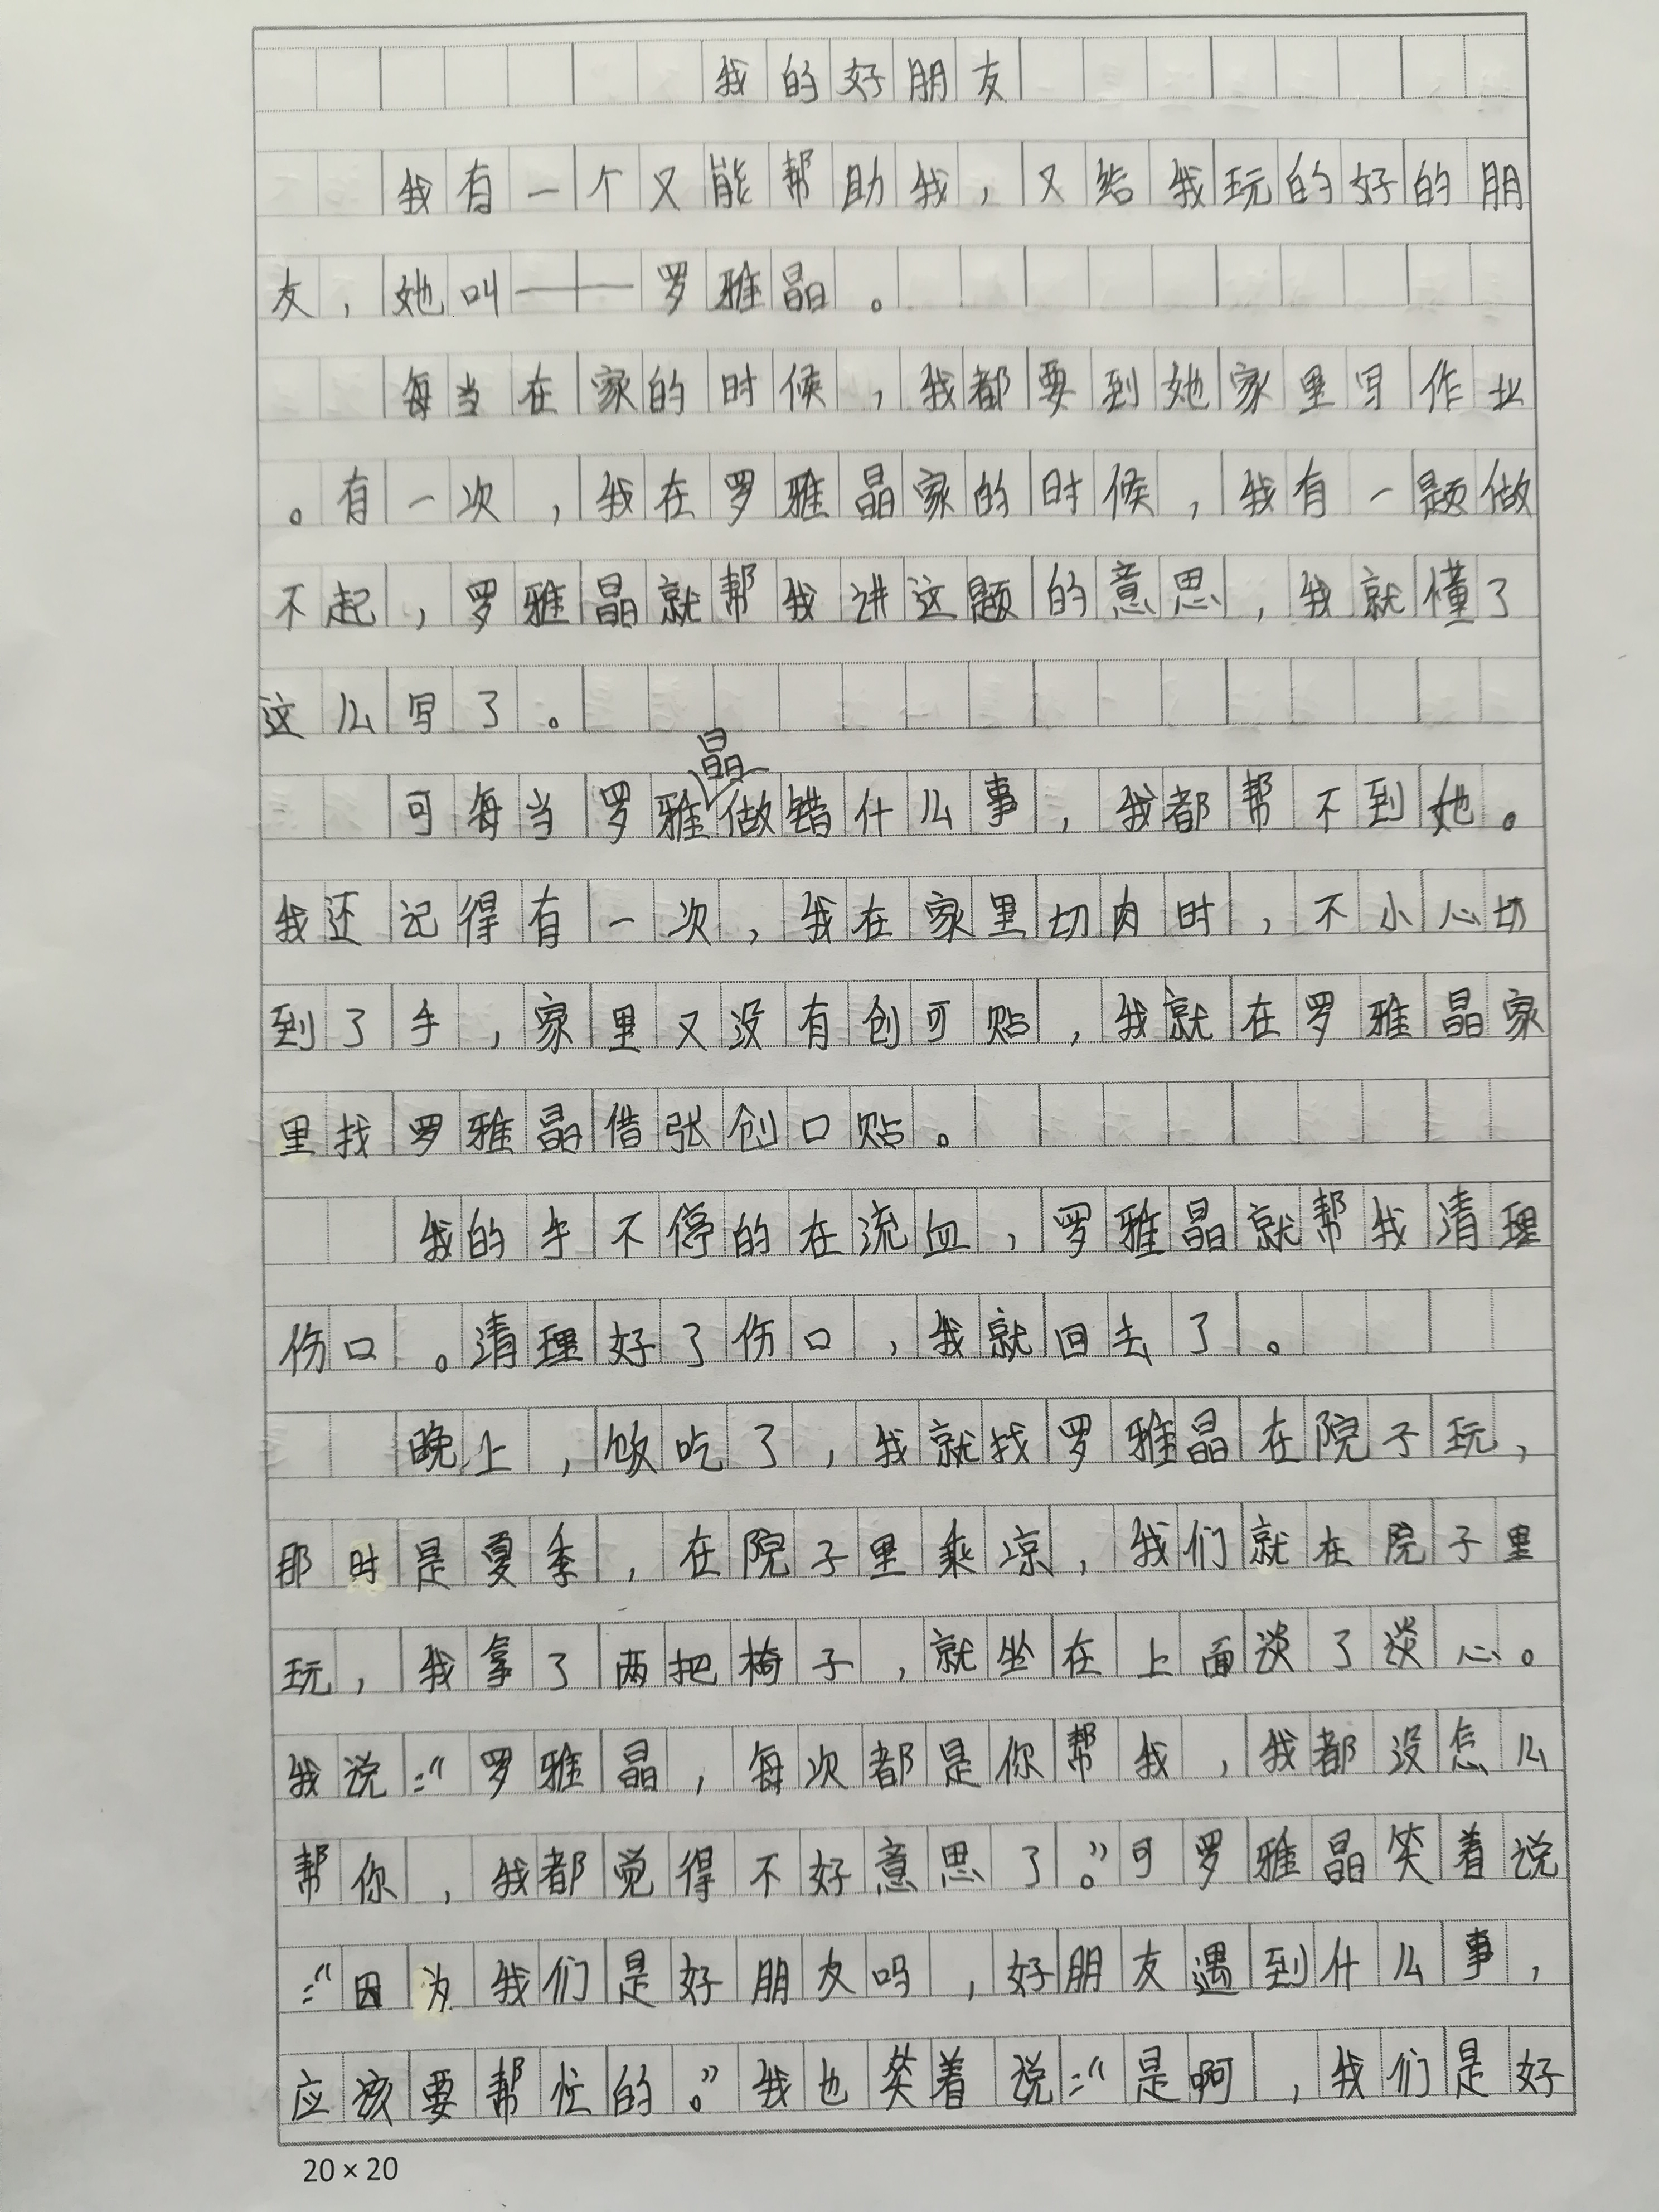 我的好朋友
我有一个又能帮助我，又给我玩的好的朋
友，她叫——罗雅晶。
每当在家的时候，我都要到她家里写作业
。有一次，我在罗雅晶家的时候，我有一题做
不起，罗雅晶就帮我讲这题的意思，我就懂了
这么写了。
可每当罗雅晶做错什么事，我都帮不到她。
我还记得有一次，我在家里切肉时，不小心切
到了手，家里又没有创可贴，我就在罗雅晶家
里找罗雅晶借张创口贴。
我的手不停的在流血，罗雅晶就帮我清理
伤口。清理好了伤口，我就回去了。
晚上，饭吃了，我就找罗雅晶在院子玩，
那时是夏季，在院子里乘凉，我们就在院子里
玩，我拿了两把椅子，就坐在上面谈了谈心。
我说：“罗雅晶，每次都是你帮我，我都没怎么
帮你，我都觉得不好意思了。”可罗雅晶笑着说
：“因为我们是好朋友吗，好朋友遇到什么事，
应该要帮忙的。”我也笑着说：“是啊，我们是好
20×20